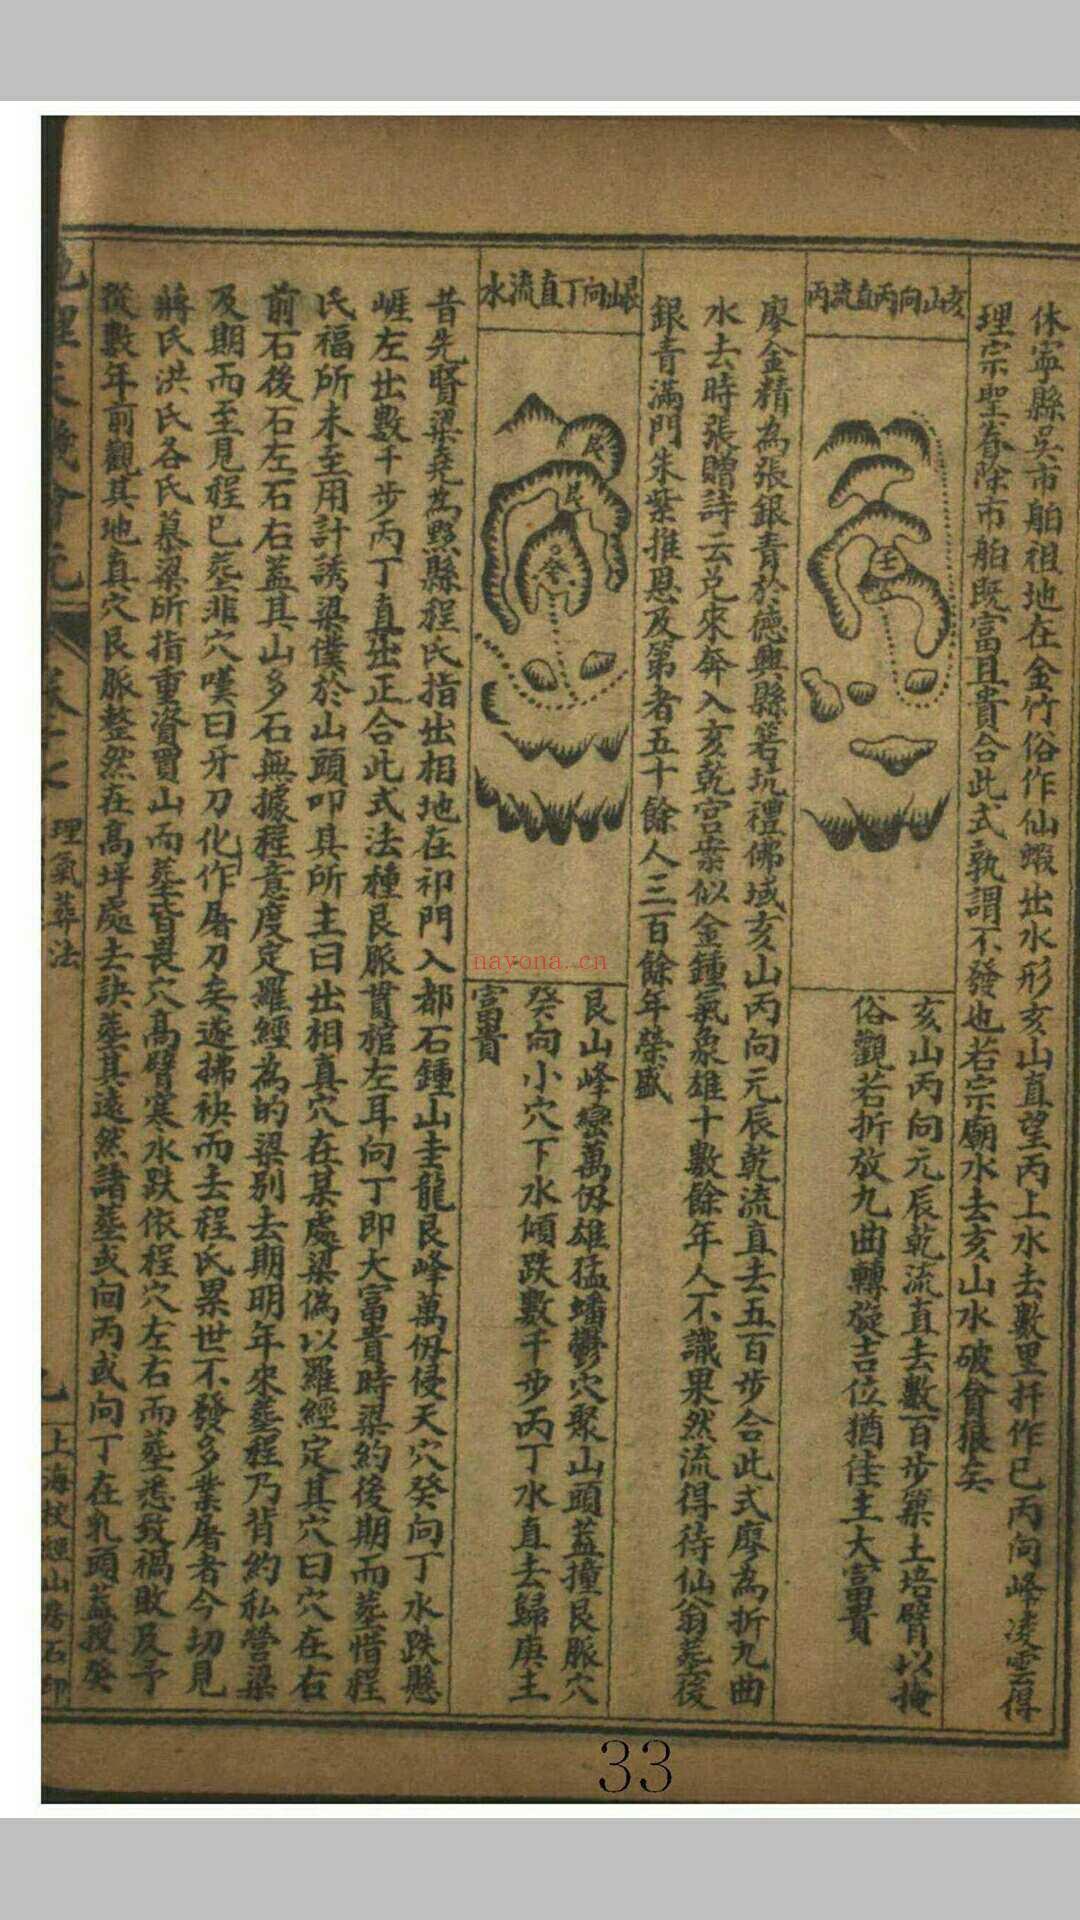 休寧縣吳市舶祖地在金竹俗作仙蝦出水形亥山直望丙上水去數里扦作巳丙向峰凌雲得
理宗聖眷除市舶既富且貴合此式孰謂不發也若宗廟水去亥山水破貪狼矣
亥山向丙直流丙
亥山丙向元辰乾流直去數百步藥土培臂以掩
俗觀若折放九曲轉旋吉位猶佳主大富貴
壬
廖金精為張銀青於德興縣箬坑禮佛域亥山丙向元辰乾流直去五百步合此式廖為折九曲
水去時張贈詩云兌來奔入亥乾宮案似金鍾氣象雄十數餘年人不識果然流得待仙翁塟後
銀青滿門朱紫推恩及第者五十餘人三百餘年榮盛
艮山向丁直流水
艮山峰巒萬仭雄猛蟠鬱穴聚山頭蓋撞艮脈穴
癸向小穴下水傾跌數千步丙丁水直去歸庚主
富貴
艮
艮
癸
昔先賢梁堯為黟縣程氏指出相地在祁門入都石鍾山圭龍艮峰萬仭侵天穴癸向丁水跌懸
崕左出數千步丙丁直出正合此式法種艮脈貫棺左耳向丁即大富貴時梁約後期而塟惜程
氏福所未至用計誘梁僕於山頭叩其所主曰出相真穴在某處梁偽以羅經定其穴曰穴在右
前石後石左石右蓋其山多石無據程意度定羅經為的梁別去期明年來塟程乃背約私營梁
及期而至見程已塟非穴嘆曰牙刀化作屠刀矣遂拂袂而去程氏累世不發多業屠者今切見
蔣氏洪氏各氏慕梁所指重資買山而塟皆畏穴高臂寒水跌依程穴左右而塟悉致禍敗及予
從數年前觀其地真穴艮脈整然在高坪處去訣塟其遠然諸塟或向丙或向丁在乳頭蓋授癸
地理天機會元
理氣葬法
上海校經山房石印
nayona.cn
33